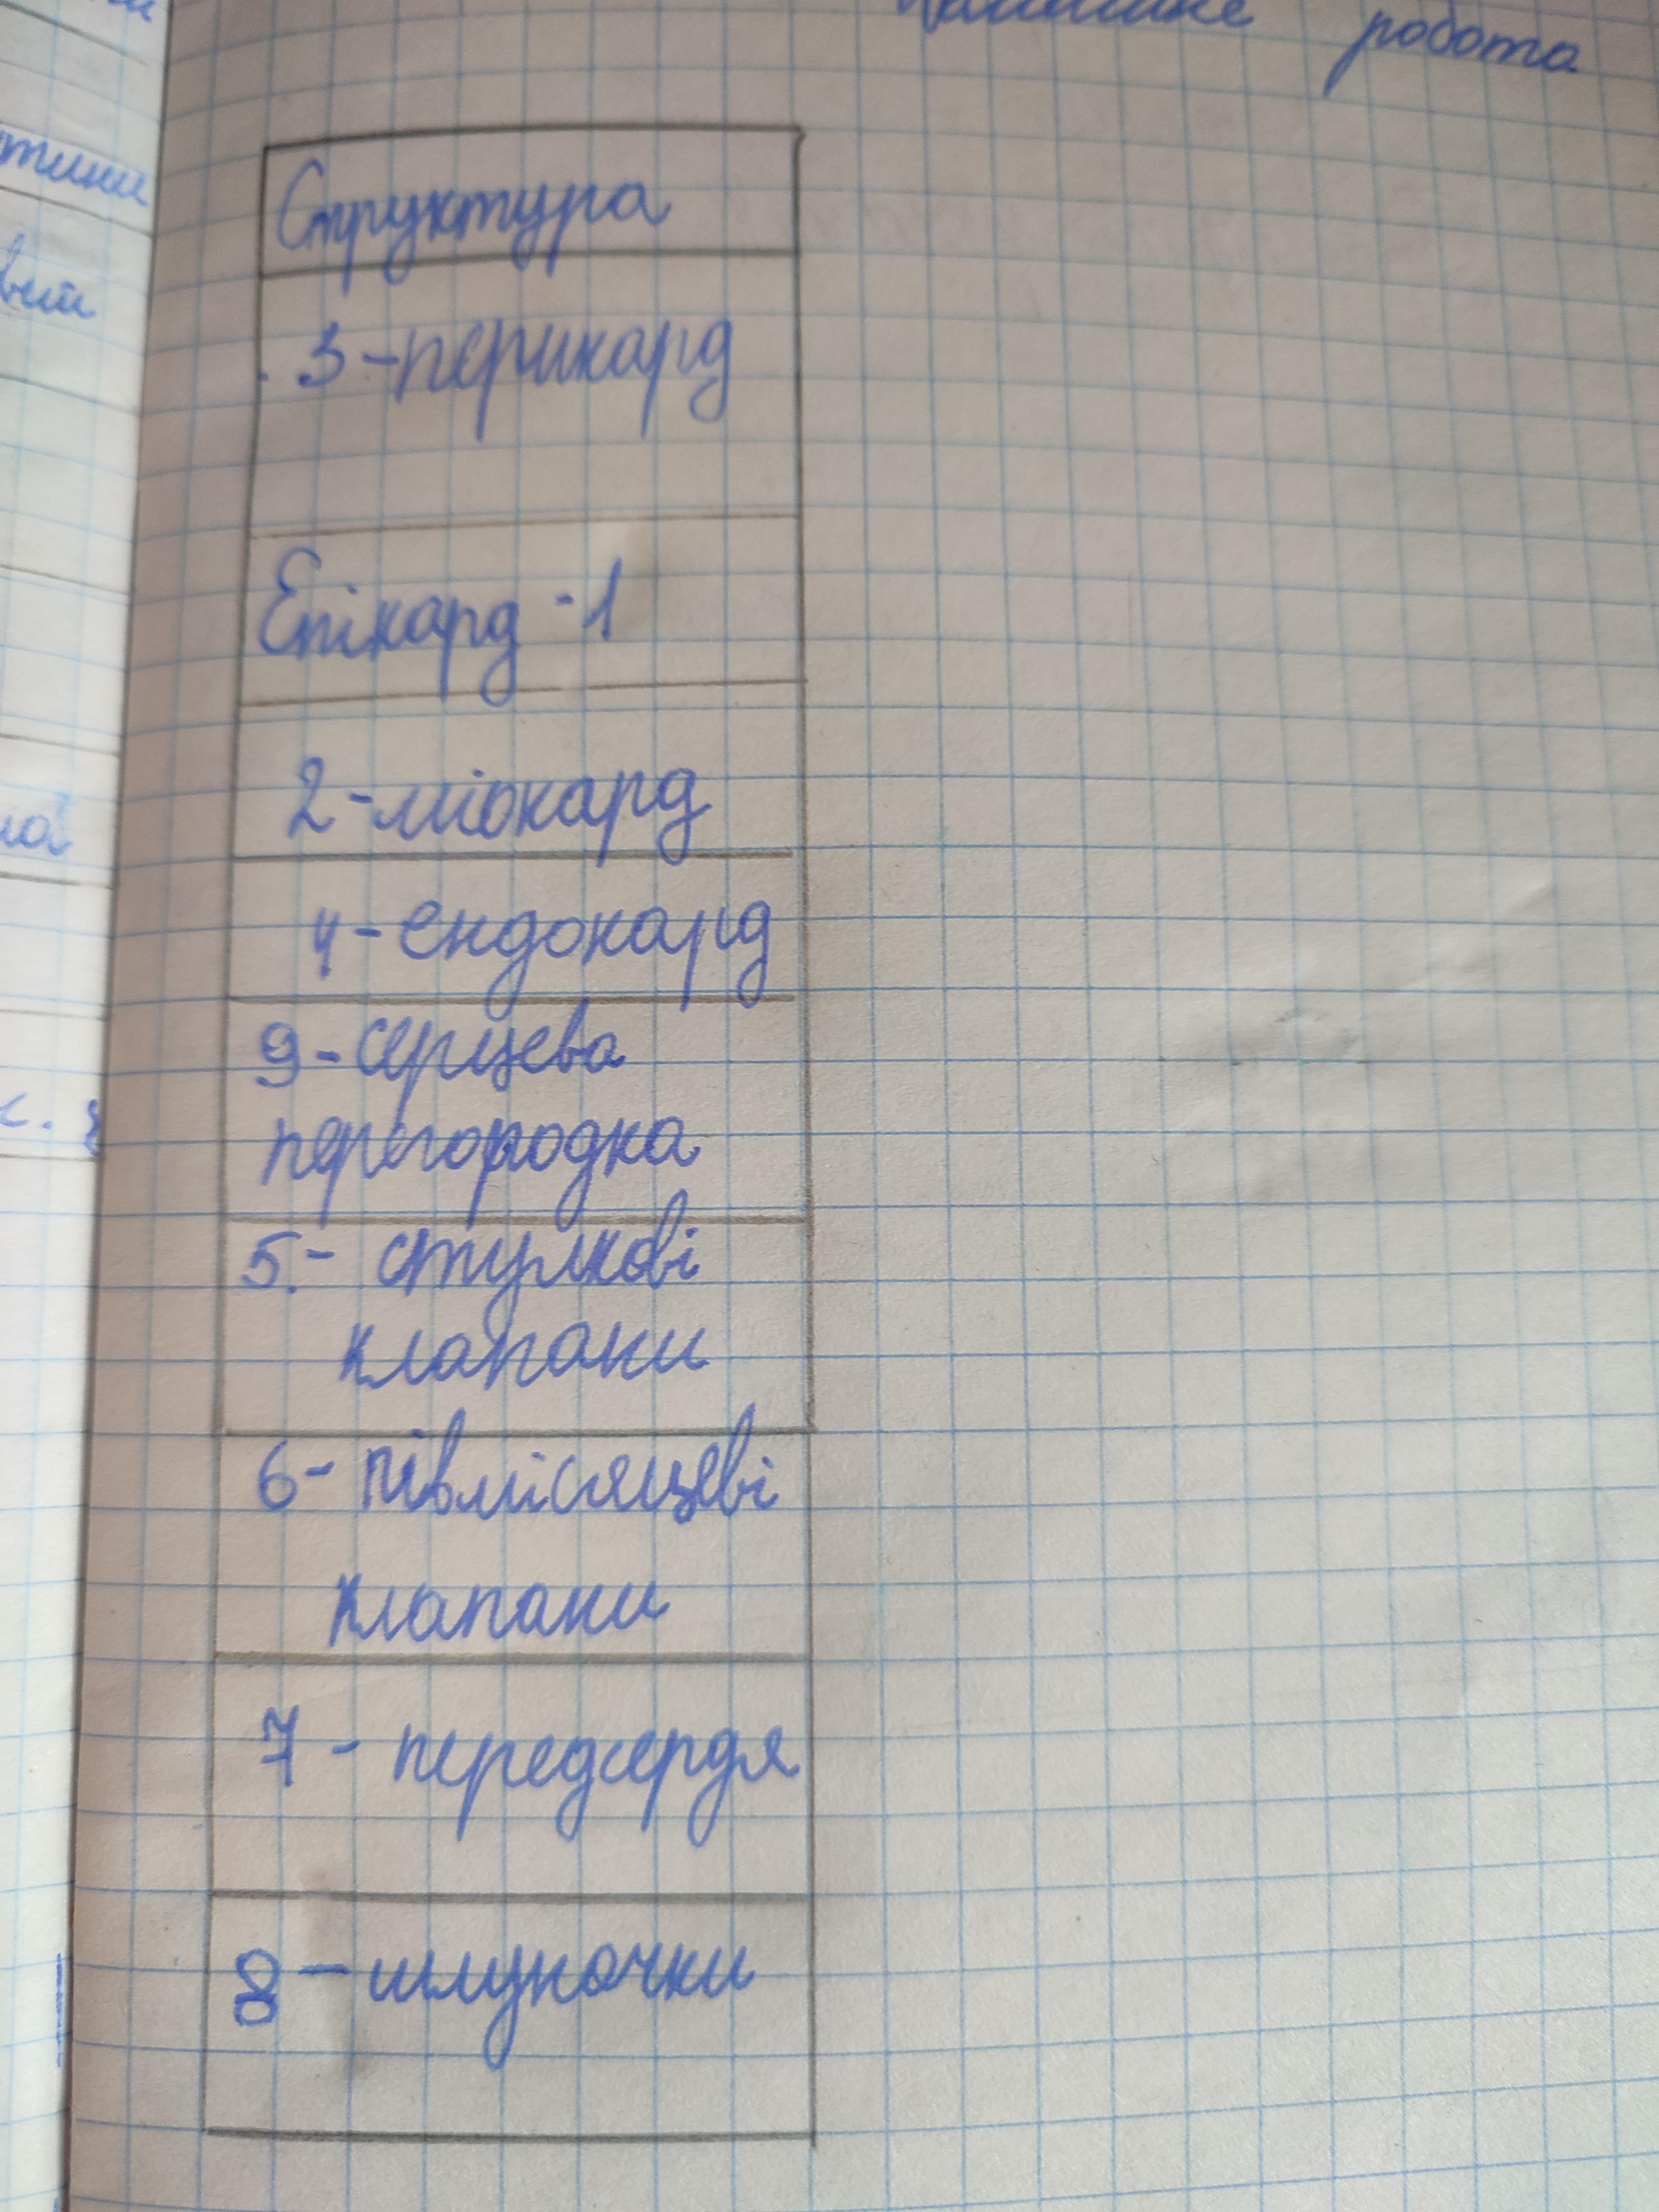 робота
Структура
3-перикард
Епікард -1
2-міокард
4-ендокард
9-серцева
перегородка
5.- стулкові
клапани
6- півмісяцеві
клапани
7- передсердя
8-шлуночки